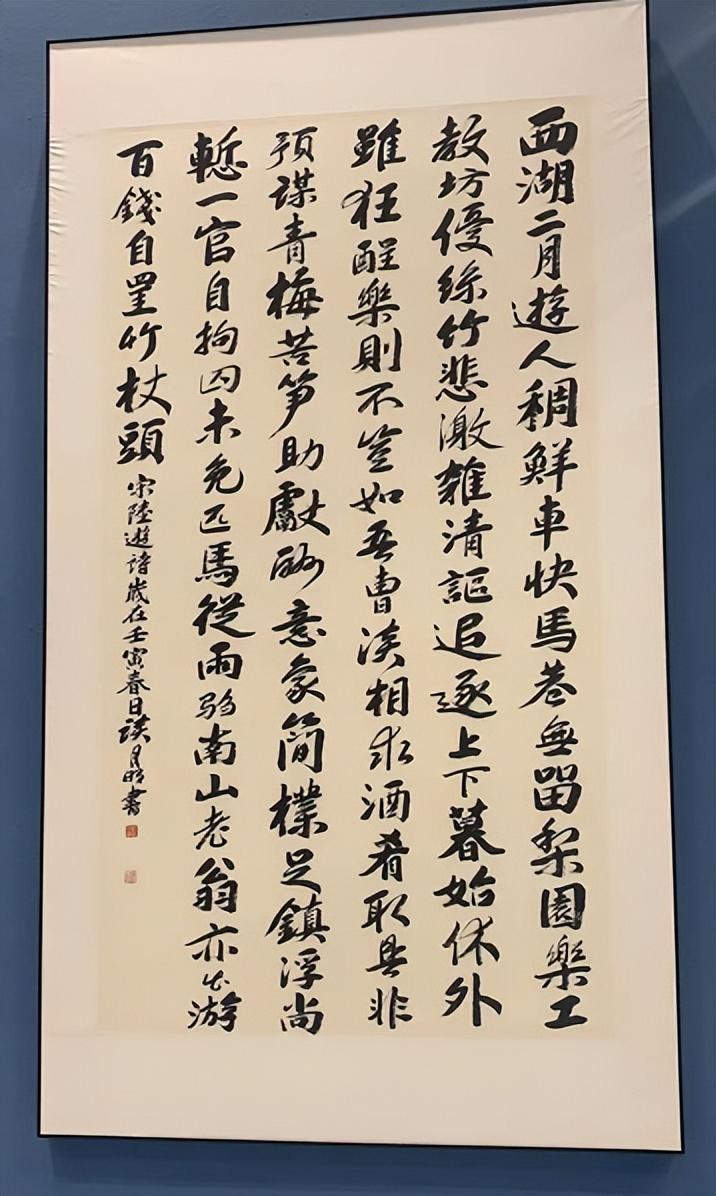 西湖二月遊人稠鮮車快馬巷無留梨園樂工
教坊優絲竹悲激雜清謳追逐上下暮始休外
雖狂酲樂則不豈如吾曹淡相求酒肴取具非
預謀青梅苦笋助獻酬意象簡樸足鎮浮尚
慙一官自拘囚未免匹馬從兩騶南山老翁亦出游
百錢自罣竹杖頭
宋陸遊詩歲在壬寅春日談月明書